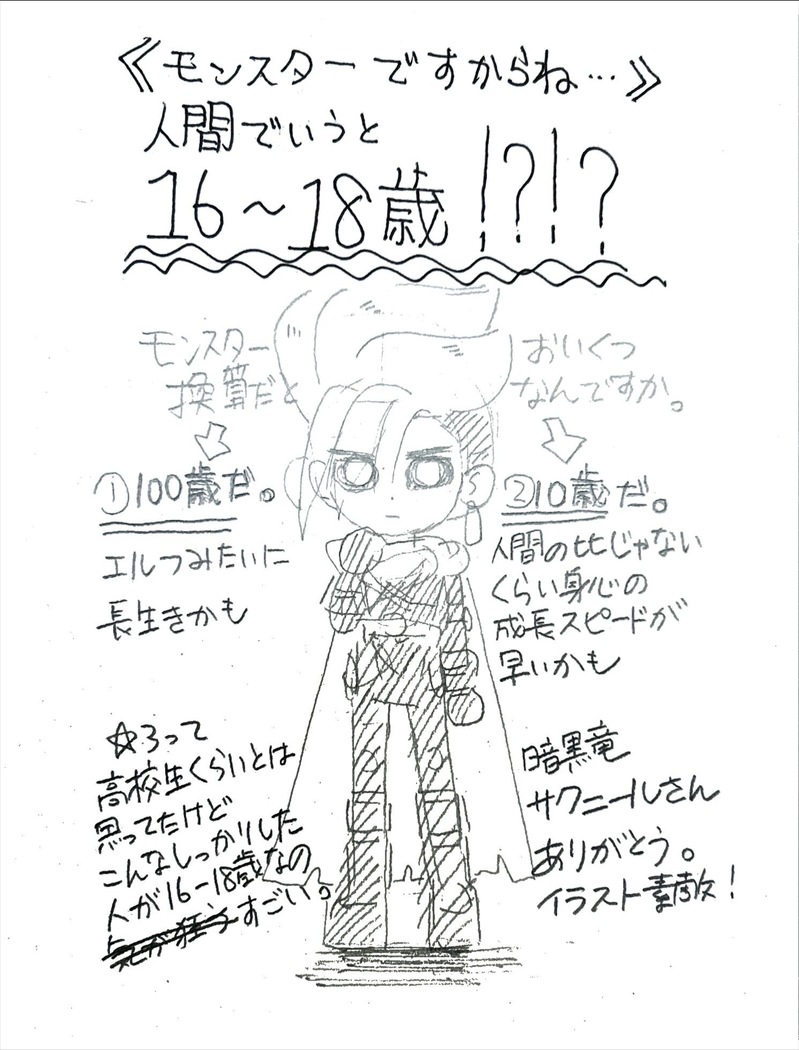 《モンスターですからね…》
人間でいうと
16〜18歳!?!?
モンスター
換算だと
おいくつ
なんですか。
①100歳だ。
エルフみたいに
長生きかも
②10歳だ。
人間の比じゃない
くらい身心の
成長スピードが
早いかも
☆3って
高校生くらいとは
思ってたけど
こんなしっかりした
人が16-18歳なの
すごい。
暗黒竜
サクニールさん
ありがとう。
イラスト素敵!